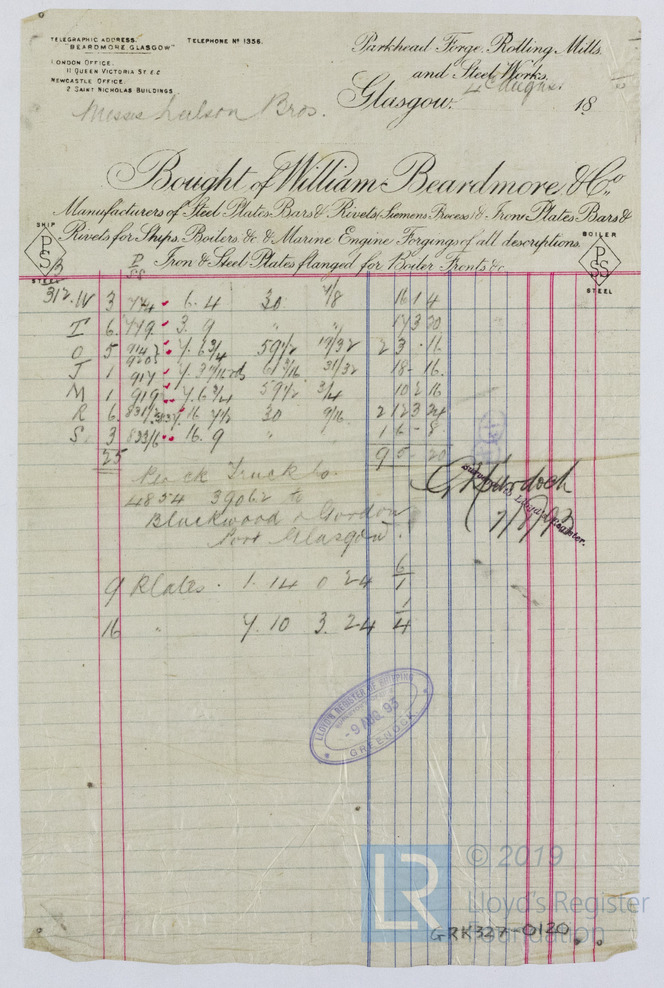 TELEGRAPHIC ADDRESS.
"BEARDMORE, GLASGOW"
TELEPHONE Nº 1356.
LONDON OFFICE.
11 QUEEN VICTORIA ST. E.C
NEWCASTLE OFFICE.
2 SAINT NICHOLAS BUILDINGS.
Parkhead Forge, Rolling Mills,
and Steel Works,
Glasgow. 4 August 18
Messrs Bros.
Bought of William Beardmore & Co.,
Manufacturers of Steel Plates Bars & Rivets (Siemens Process) & Iron Plates Bars &
Rivets for Ships, Boilers &c & Marine Engine Forgings of all descriptions.
Iron & Steel Plates flanged for Boiler Fronts &c
SHIP
PSS
STEEL
BOILER
PSS
STEEL
3 6.4 30 7/8 16 1 4
6 779 3.9 " " 17 3 20
O 5 7.6 3/4 59 1/2 19/32 2 3 . 16
J 1 917 31/32 18 - 16
M 1 919 7.6 3/4 59 1/2 3/4 10 2 16
R 6 16 7 1/2 30 9/16 2 12 3 24
S 3 833/6 16.9 " " 1 6 - 8
25 9 5 - 20
Truck to
4854 39062 to
Blackwood & Gordon
Port Glasgow.
G Murdoch
Lloyd's Register.
9 Plates. 1. 14 0 24 6/1
16 " 7. 10 3. 24 1/4
LLOYD'S REGISTER OF SHIPPING
-9 AUG. 93
GREENOCK
LR
© 2019
Lloyd's Register
Foundation
GRK327-0120